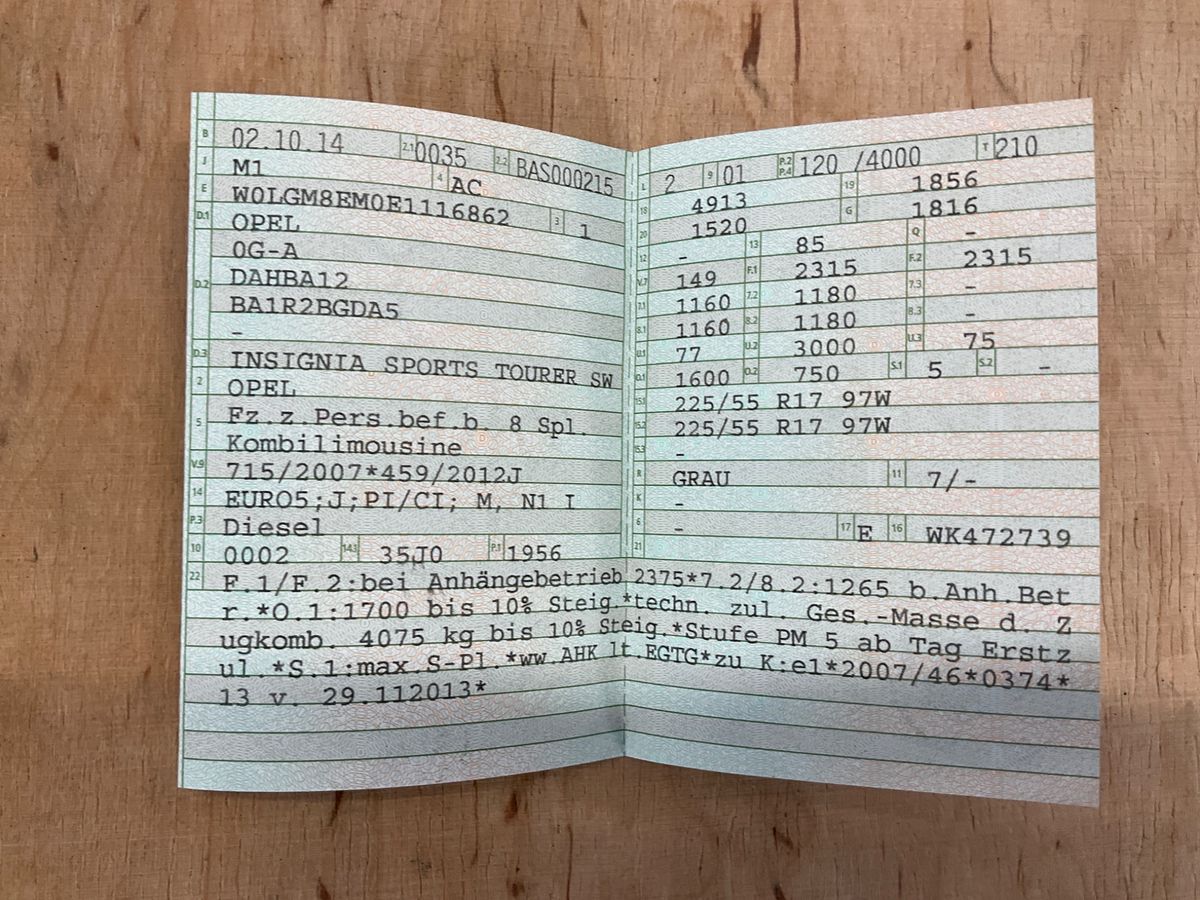 B 02.10.14 2.1 0035 2.2 BAS000215
J M1 4 AC
E W0LGM8EM0E1116862 3 1
D.1 OPEL
0G-A
D.2 DAHBA12
BA1R2BGDA5
-
D.3 INSIGNIA SPORTS TOURER SW
2 OPEL
5 Fz.z.Pers.bef.b. 8 Spl.
Kombilimousine
V.9 715/2007*459/2012J
14 EURO5;J;PI/CI; M, N1 I
P.3 Diesel
10 0002 14.1 35J0 P.1 1956
L 2 9 01 P.2 P.4 120 /4000 T 210
18 4913 19 1856
20 1520 G 1816
12 - 13 85 Q -
V.7 149 F.1 2315 F.2 2315
7.1 1160 7.2 1180 7.3 -
8.1 1160 8.2 1180 8.3 -
U.1 77 U.2 3000 U.3 75
O.1 1600 O.2 750 S.1 5 S.2 -
15.1 225/55 R17 97W
15.2 225/55 R17 97W
15.3 -
R GRAU 11 7/-
K -
6 - 17 E 16 WK472739
21
22 F.1/F.2:bei Anhängebetrieb 2375*7.2/8.2:1265 b.Anh.Bet
r.*O.1:1700 bis 10% Steig.*techn. zul. Ges.-Masse d. Z
ugkomb. 4075 kg bis 10% Steig.*Stufe PM 5 ab Tag Erstz
ul.*S.1:max.S-Pl.*ww.AHK lt.EGTG*zu K:e1*2007/46*0374*
13 v. 29.112013*